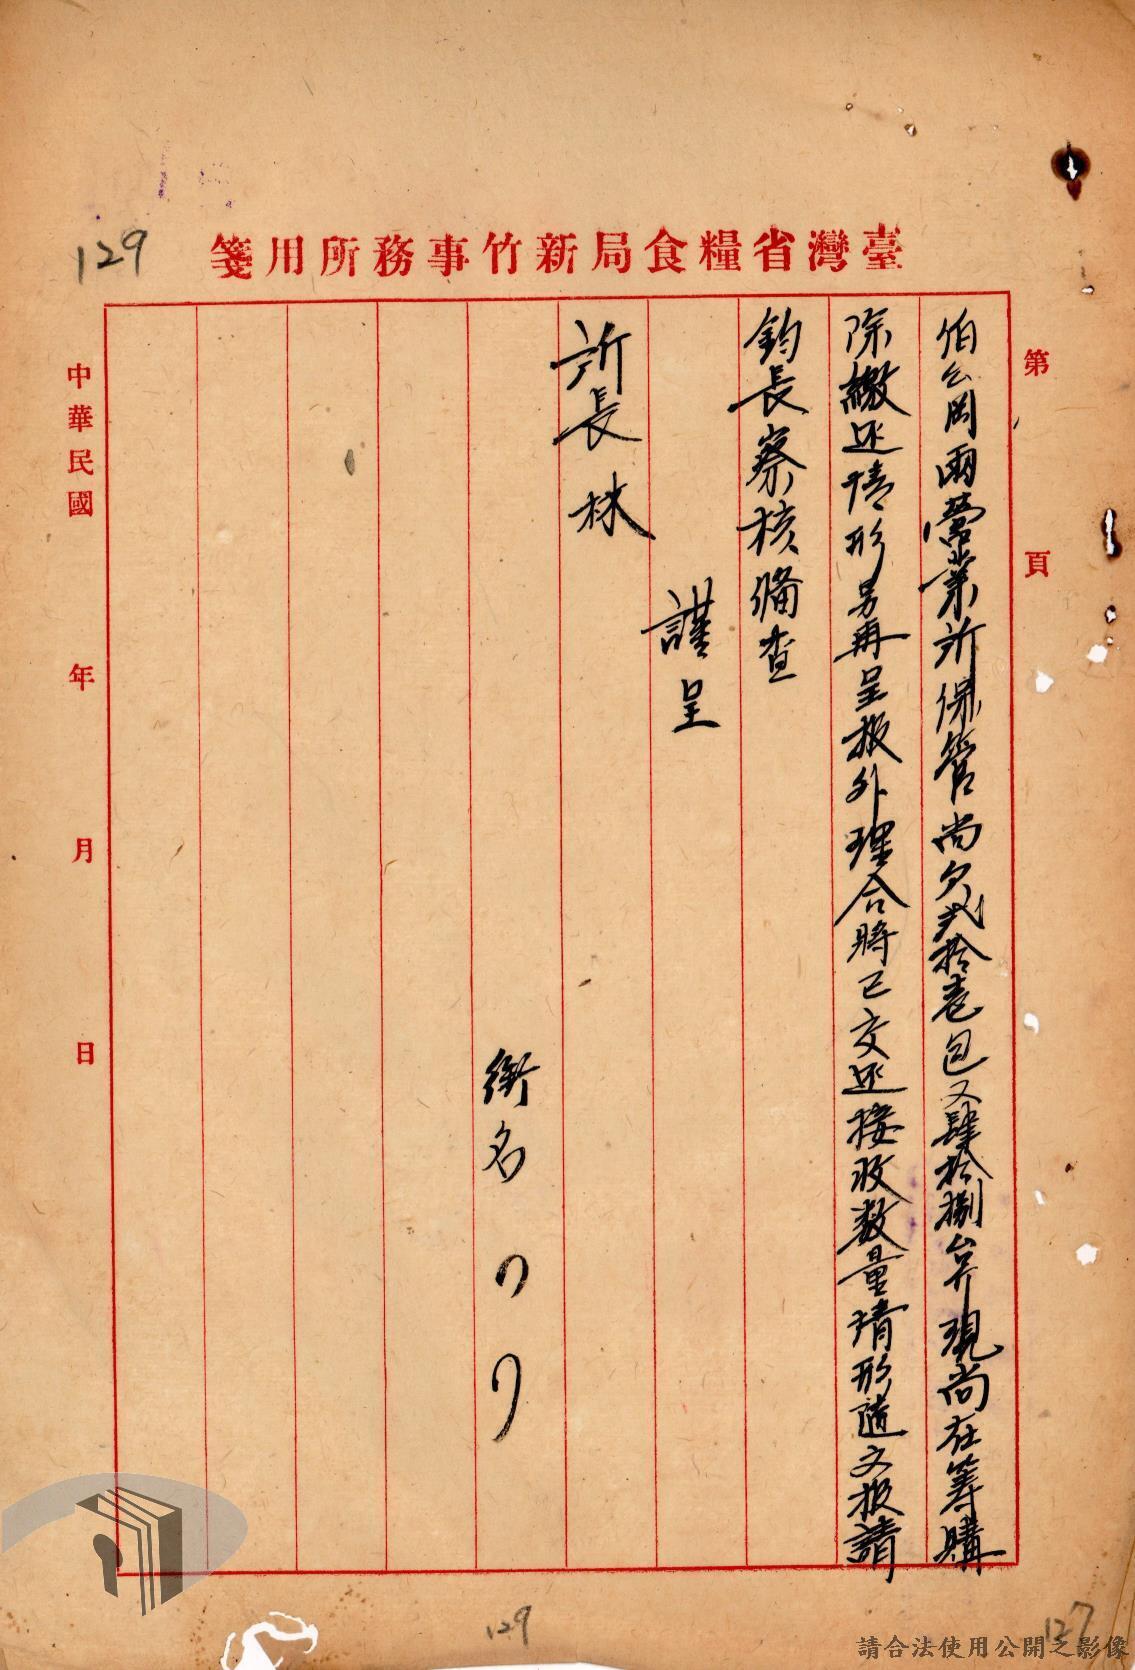 臺灣省糧食局新竹事務所用箋
第 頁
伯公岡兩營業所保管尚欠貳拾壱包又肆拾捌台斤現尚在籌購
除繳还情形另再呈报外理合將已交还接收数量情形謹文报請
鈞長察核備查
謹呈
所長林
銜名
中華民國 年 月 日
129
129
127
請合法使用公開之影像